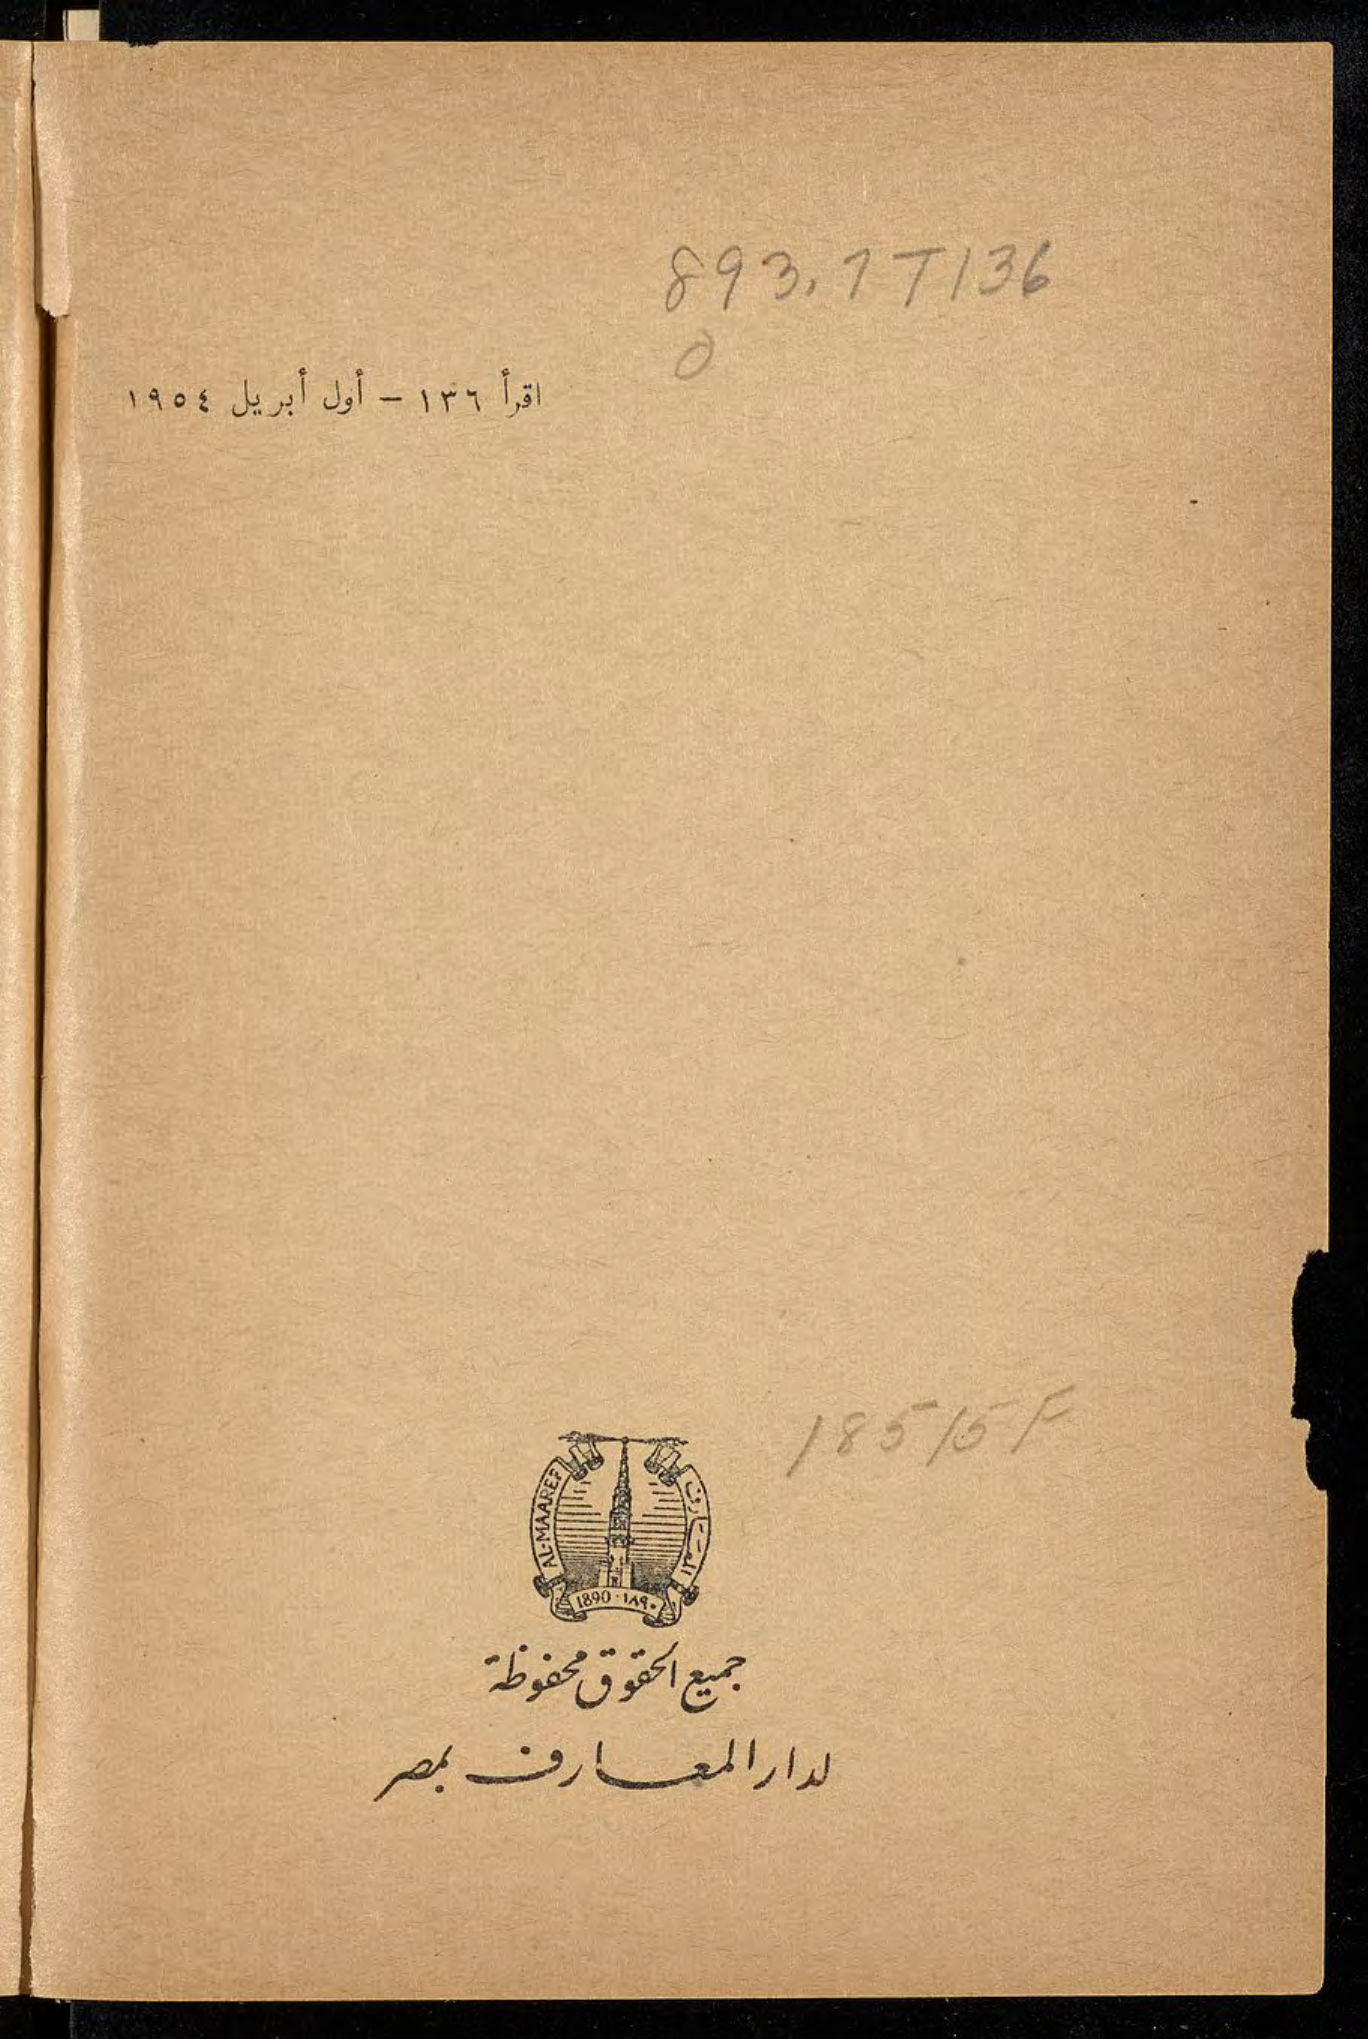 893.7T136
O
اقرأ ١٣٦ – أول أبريل ١٩٥٤
18515F
AL-MAAREF
المعارف
1890 · ١٨٩٠
جميع الحقوق محفوظة
لدار المعارف بمصر